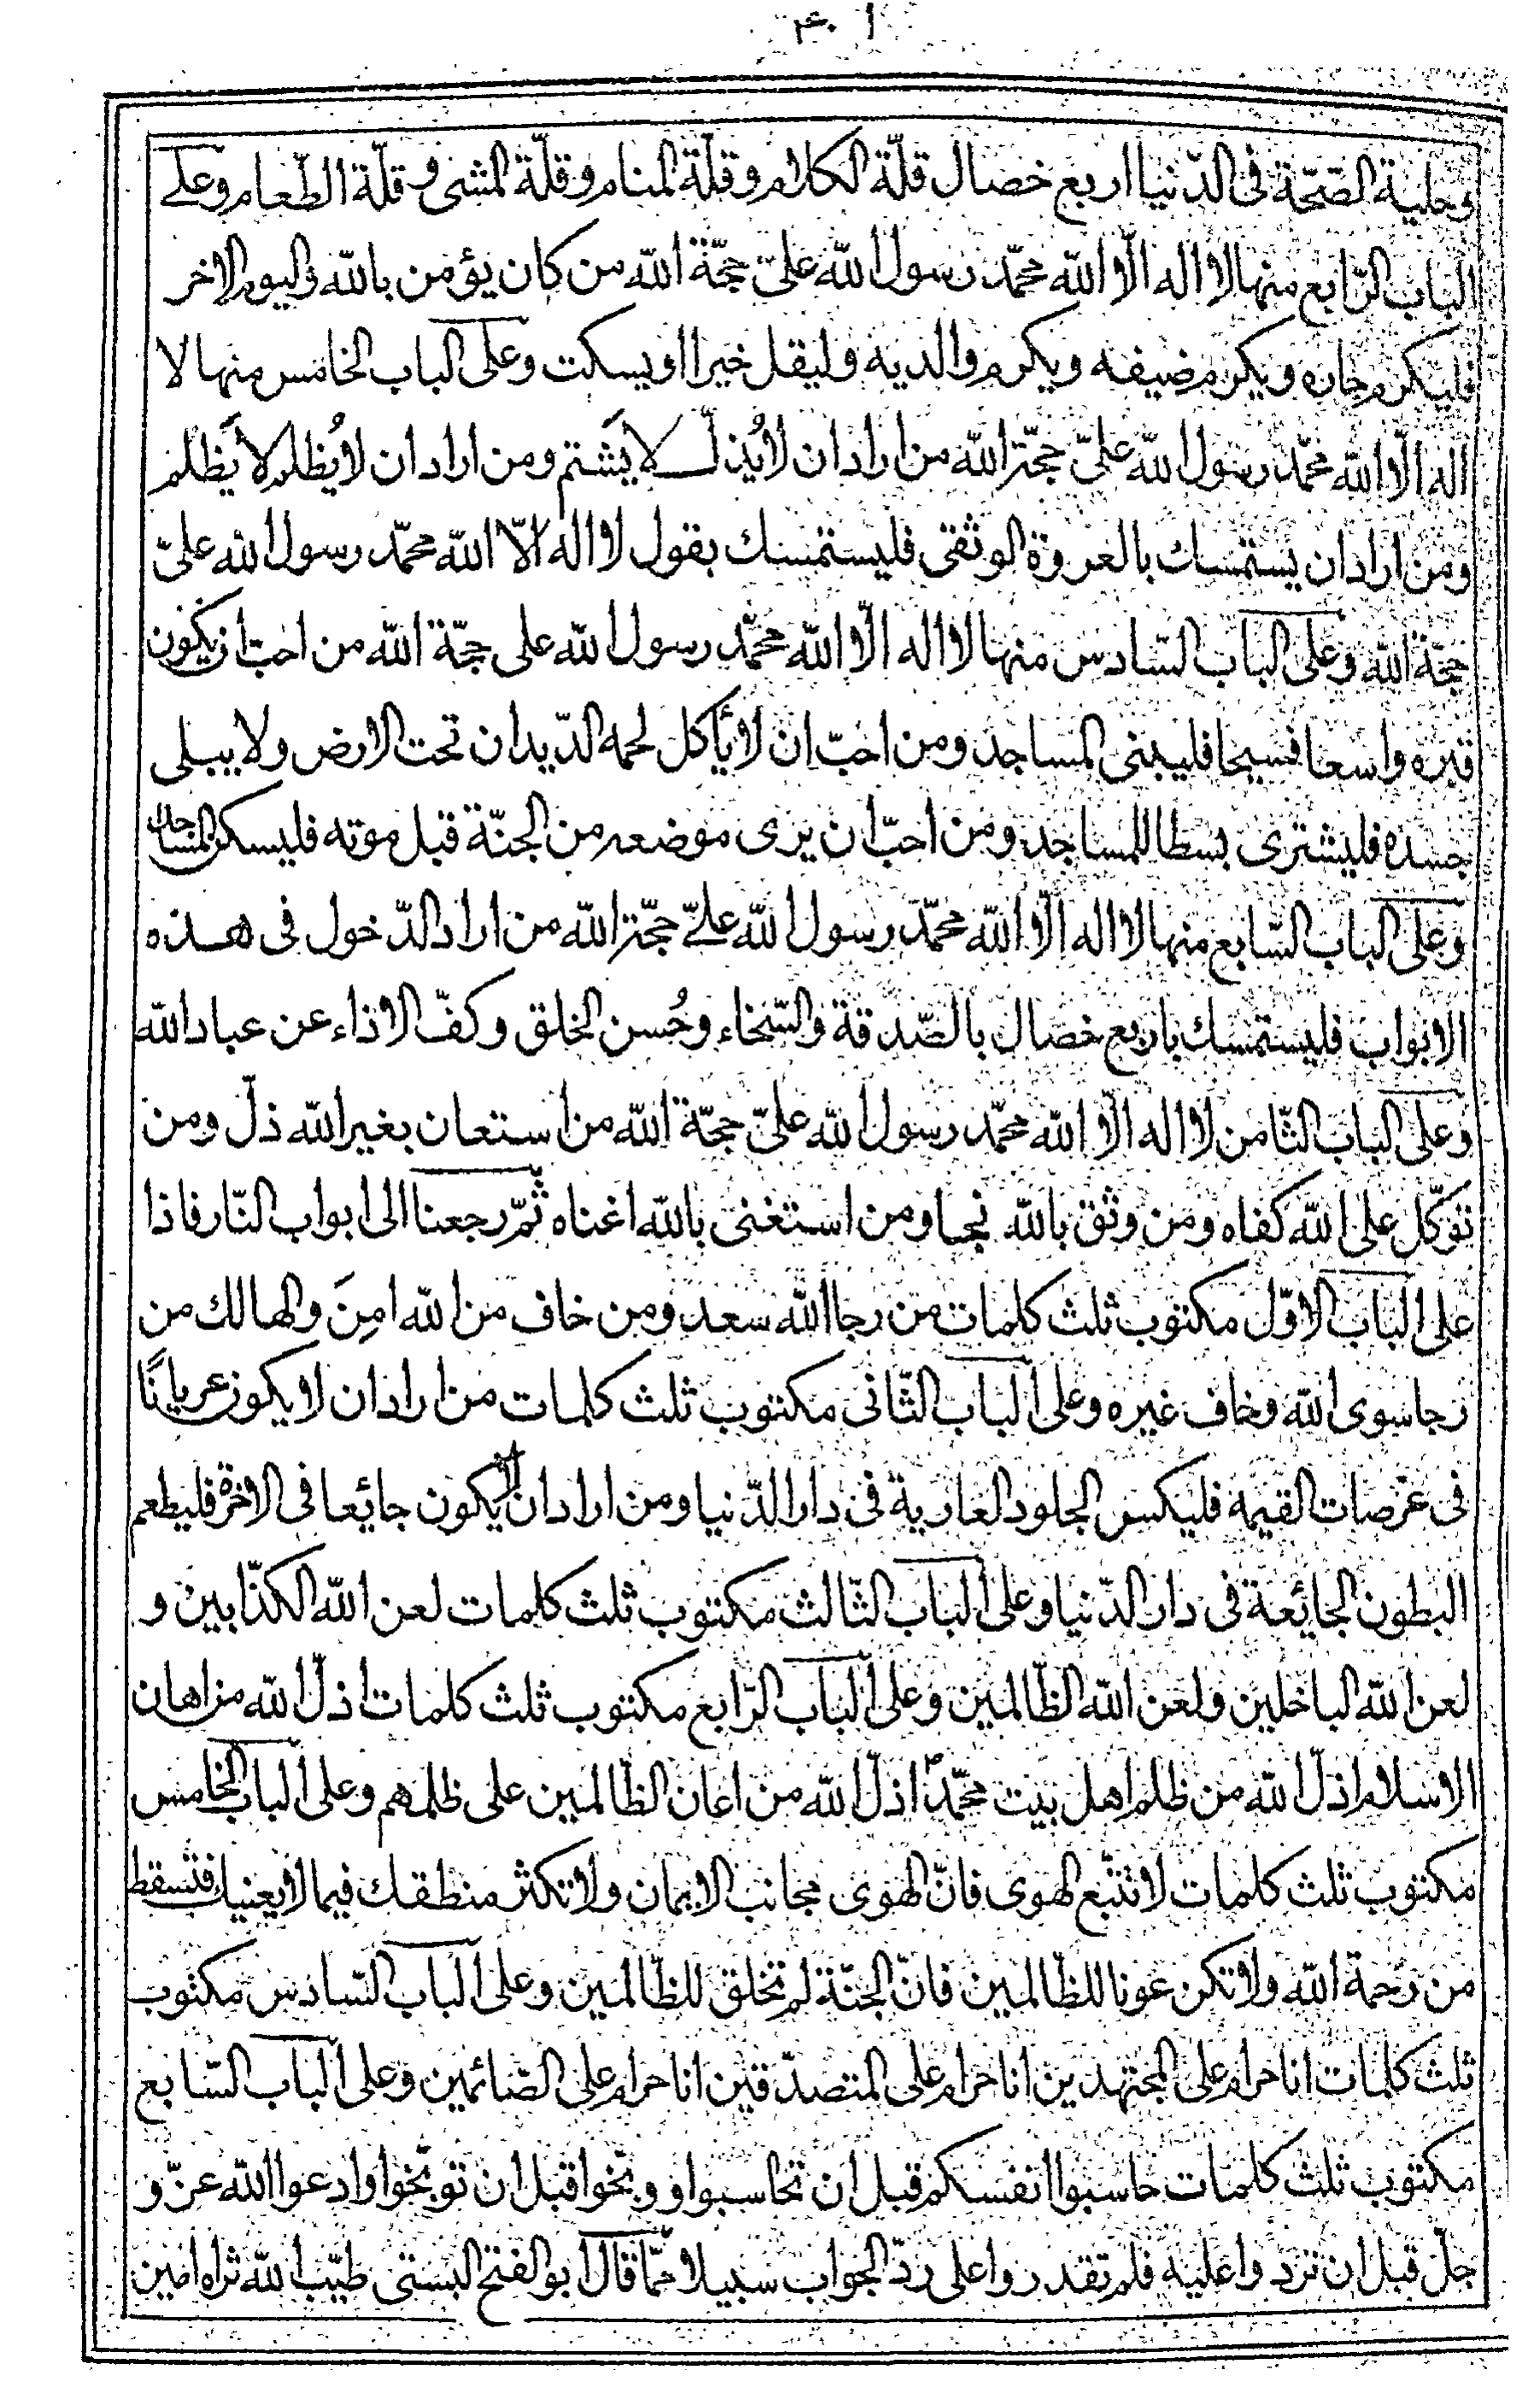 ۴۰۱
وحلية الصّحّة فى الدّنيا اربع خصال قلّة الكلام وقلّة المنام وقلّة المشى وقلّة الطّعام وعلى
الباب الرّابع منها لا اله الّا الله محمّد رسول الله علىّ حجّة الله من كان يؤمن بالله واليوم الاخر
فليكرم جاره ويكرم ضيفه ويكرم والديه وليقل خيرا او يسكت وعلى الباب الخامس منها لا
اله الّا الله محمّد رسول الله علىّ حجّة الله من اراد ان لا يُذلّ لا يَشتم ومن اراد ان لا يُظلم لا يَظلم
ومن اراد ان يستمسك بالعروة الوثقى فليستمسك بقول لا اله الّا الله محمّد رسول الله علىّ
حجّة الله وعلى الباب السّادس منها لا اله الّا الله محمّد رسول الله على حجّة الله من احبّ ان يكون
قبره واسعا فسيحا فليبنى المساجد ومن احبّ ان لا يأكل لحمه الدّيدان تحت الارض ولا يبلى
جسده فليشترى بسطا للمساجد ومن احبّ ان يرى موضعه من الجنّة قبل موته فليسكن المساجد
وعلى الباب السّابع منها لا اله الّا الله محمّد رسول الله علىّ حجّة الله من اراد الدّخول فى هذه
الابواب فليستمسك باربع خصال بالصّدقة والسّخاء وحُسن الخلق وكفّ الاذاء عن عباد الله
وعلى الباب الثّامن لا اله الّا الله محمّد رسول الله علىّ حجّة الله من استعان بغير الله ذلّ ومن
توكّل على الله كفاه ومن وثق بالله نجا ومن استغنى بالله اغناه ثمّ رجعنا الى ابواب النّار فاذا
على الباب الاوّل مكتوب ثلث كلمات من رجا الله سعد ومن خاف من الله امِنَ والهالك من
رجا سوى الله وخاف غيره وعلى الباب الثّانى مكتوب ثلث كلمات من اراد ان لا يكون عريانًا
فى عرصات القيمه فليكس الجلود العارية فى دار الدّنيا ومن اراد ان لا يكون جائعا فى الاخرة فليطعم
البطون الجائعة فى دار الدّنيا وعلى الباب الثّالث مكتوب ثلث كلمات لعن الله الكذّابين و
لعن الله الباخلين ولعن الله الظّالمين وعلى الباب الرّابع مكتوب ثلث كلمات اذلّ الله من اهان
الاسلام اذلّ الله من ظلم اهل بيت محمّدؐ اذلّ الله من اعان الظّالمين على ظلمهم وعلى الباب الخامس
مكتوب ثلث كلمات لا تتّبع الهوى فانّ الهوى مجانب الايمان ولا تكثر منطقك فيما لا يعنيك فتسقط
من رحمة الله ولا تكن عونا للظّالمين فانّ الجنّة لم تخلق للظّالمين وعلى الباب السّادس مكتوب
ثلث كلمات انا حرام على المجتهدين انا حرام على المتصدّقين انا حرام على الصّائمين وعلى الباب السّابع
مكتوب ثلث كلمات حاسبوا انفسكم قبل ان تحاسبوا ووبّخوا قبل ان توبّخوا وادعوا الله عزّ و
جلّ قبل ان تردوا عليه فلم تقدروا على ردّ الجواب سبيلا ممّا قال ابو الفتح البستى طيّب الله ثراه امين